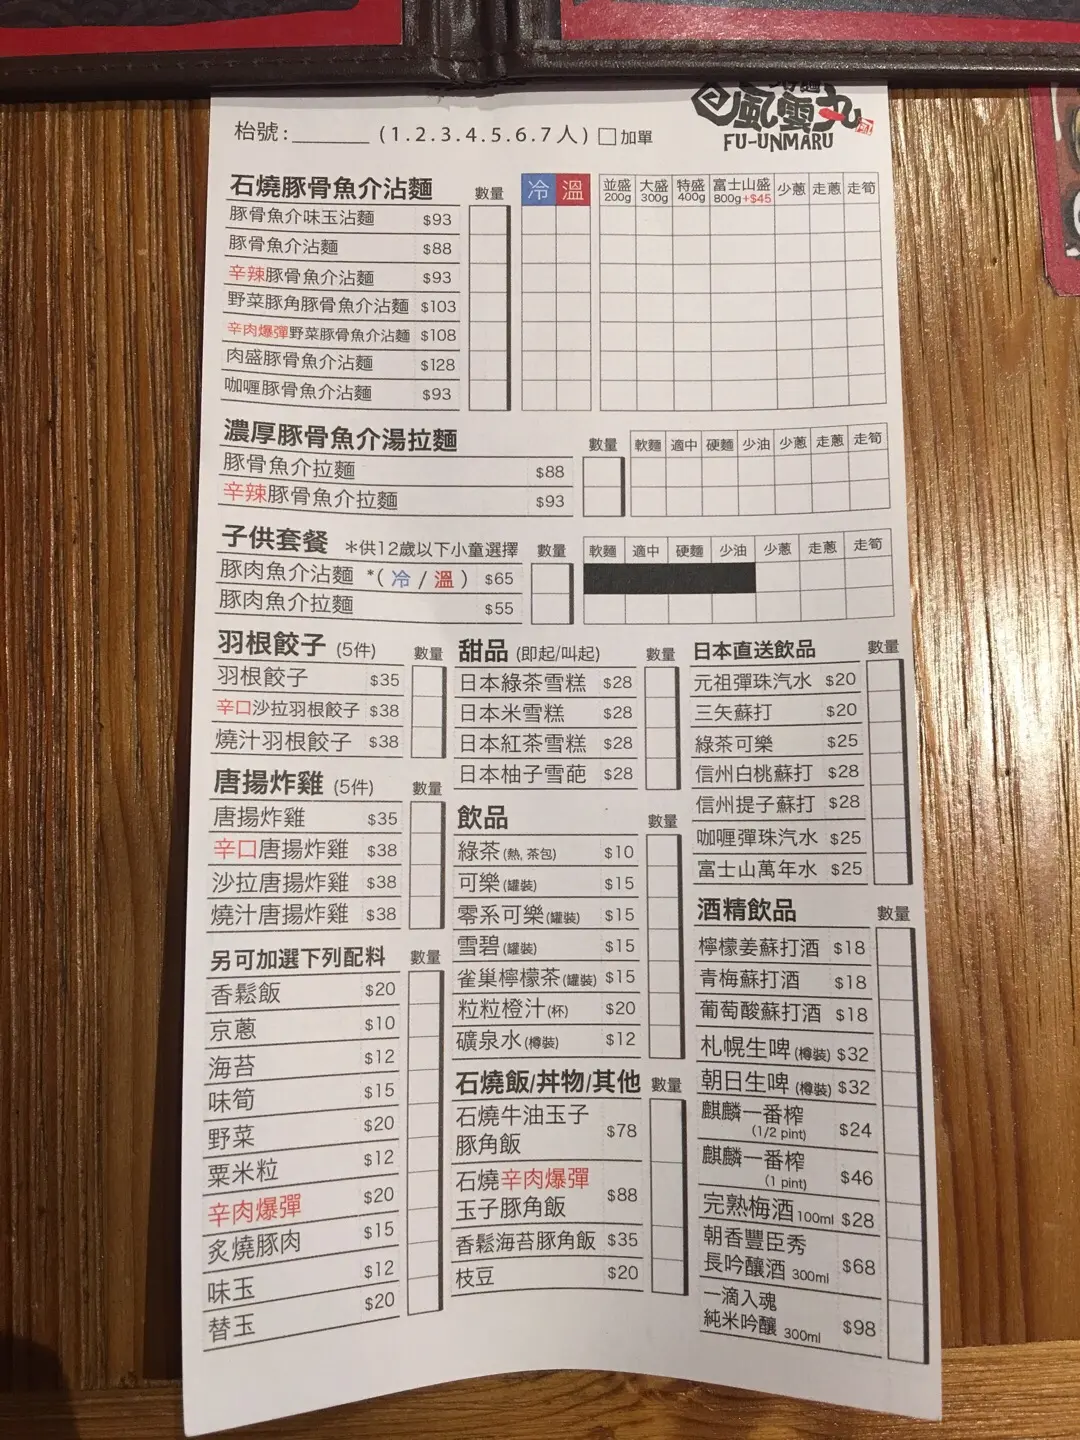 風雲丸
FU-UNMARU
枱號:______ (1.2.3.4.5.6.7人) □加單
石燒豚骨魚介沾麵 數量 冷 溫 並盛200g 大盛300g 特盛400g 富士山盛800g+$45 少蔥 走蔥 走筍
豚骨魚介味玉沾麵 $93
豚骨魚介沾麵 $88
辛辣豚骨魚介沾麵 $93
野菜豚角豚骨魚介沾麵 $103
辛肉爆彈野菜豚骨魚介沾麵 $108
肉盛豚骨魚介沾麵 $128
咖喱豚骨魚介沾麵 $93
濃厚豚骨魚介湯拉麵 數量 軟麵 適中 硬麵 少油 少蔥 走蔥 走筍
豚骨魚介拉麵 $88
辛辣豚骨魚介拉麵 $93
子供套餐 *供12歲以下小童選擇 數量 軟麵 適中 硬麵 少油 少蔥 走蔥 走筍
豚肉魚介沾麵 *(冷/溫) $65
豚肉魚介拉麵 $55
羽根餃子 (5件) 數量
羽根餃子 $35
辛口沙拉羽根餃子 $38
燒汁羽根餃子 $38
唐揚炸雞 (5件) 數量
唐揚炸雞 $35
辛口唐揚炸雞 $38
沙拉唐揚炸雞 $38
燒汁唐揚炸雞 $38
另可加選下列配料 數量
香鬆飯 $20
京蔥 $10
海苔 $12
味筍 $15
野菜 $20
粟米粒 $12
辛肉爆彈 $20
炙燒豚肉 $15
味玉 $12
替玉 $20
甜品 (即起/叫起) 數量
日本綠茶雪糕 $28
日本米雪糕 $28
日本紅茶雪糕 $28
日本柚子雪葩 $28
飲品 數量
綠茶(熱, 茶包) $10
可樂(罐裝) $15
零系可樂(罐裝) $15
雪碧(罐裝) $15
雀巢檸檬茶(罐裝) $15
粒粒橙汁(杯) $20
礦泉水(樽裝) $12
石燒飯/丼物/其他 數量
石燒牛油玉子
豚角飯 $78
石燒辛肉爆彈
玉子豚角飯 $88
香鬆海苔豚角飯 $35
枝豆 $20
日本直送飲品 數量
元祖彈珠汽水 $20
三矢蘇打 $20
綠茶可樂 $25
信州白桃蘇打 $28
信州提子蘇打 $28
咖喱彈珠汽水 $25
富士山萬年水 $25
酒精飲品 數量
檸檬姜蘇打酒 $18
青梅蘇打酒 $18
葡萄酸蘇打酒 $18
札幌生啤(樽裝) $32
朝日生啤(樽裝) $32
麒麟一番榨
(1/2 pint) $24
麒麟一番榨
(1 pint) $46
完熟梅酒100ml $28
朝香豐臣秀
長吟釀酒 300ml $68
一滴入魂
純米吟釀 300ml $98